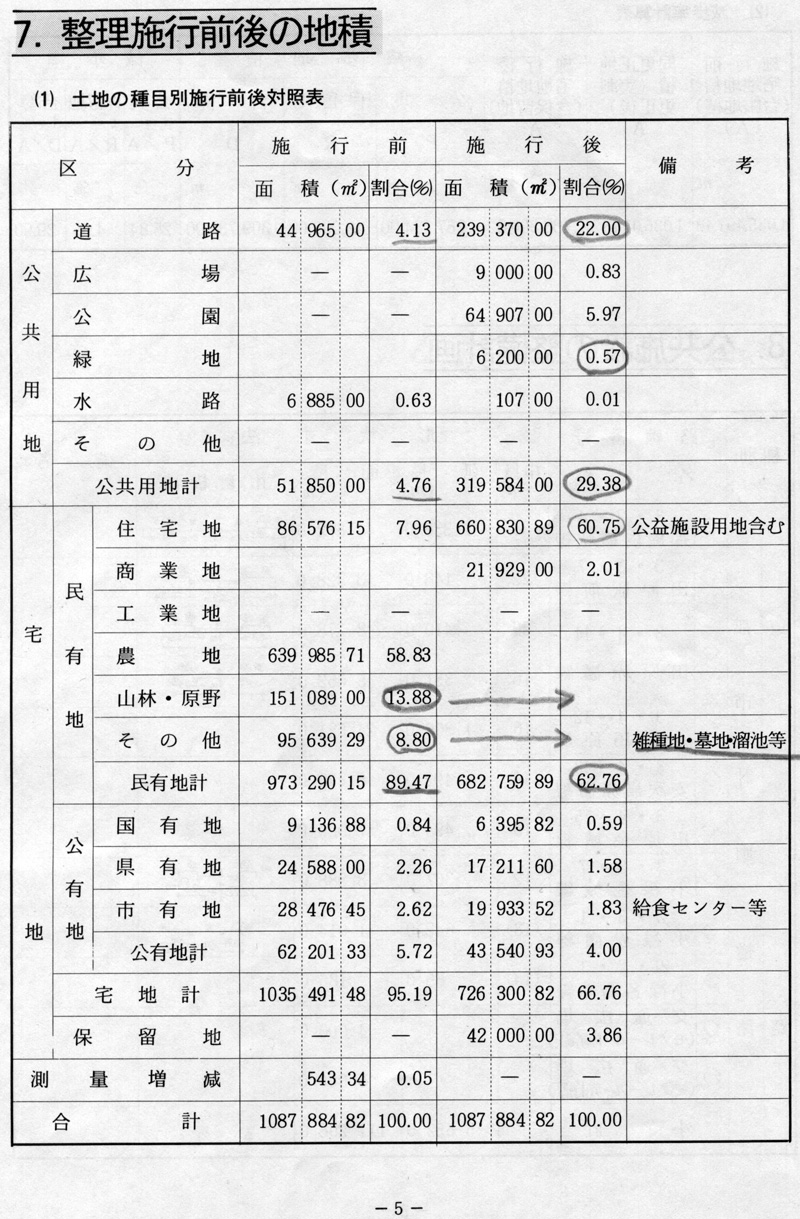 7. 整理施行前後の地積
(1) 土地の種目別施行前後対照表
区 分 施 行 前 施 行 後 備 考
面 積(㎡) 割合(%) 面 積(㎡) 割合(%)
公共用地 道 路 44 965 00 4.13 239 370 00 22.00
広 場 — — 9 000 00 0.83
公 園 — — 64 907 00 5.97
緑 地 6 200 00 0.57
水 路 6 885 00 0.63 107 00 0.01
そ の 他 — — — —
公共用地計 51 850 00 4.76 319 584 00 29.38
宅地 民有地 住 宅 地 86 576 15 7.96 660 830 89 60.75 公益施設用地含む
商 業 地 21 929 00 2.01
工 業 地 — — — —
農 地 639 985 71 58.83
山林・原野 151 089 00 13.88
そ の 他 95 639 29 8.80 雑種地・墓地・溜池等
民有地計 973 290 15 89.47 682 759 89 62.76
公有地 国 有 地 9 136 88 0.84 6 395 82 0.59
県 有 地 24 588 00 2.26 17 211 60 1.58
市 有 地 28 476 45 2.62 19 933 52 1.83 給食センター等
公有地計 62 201 33 5.72 43 540 93 4.00
宅 地 計 1035 491 48 95.19 726 300 82 66.76
保 留 地 — — 42 000 00 3.86
測 量 増 減 543 34 0.05 — —
合 計 1087 884 82 100.00 1087 884 82 100.00
— 5 —